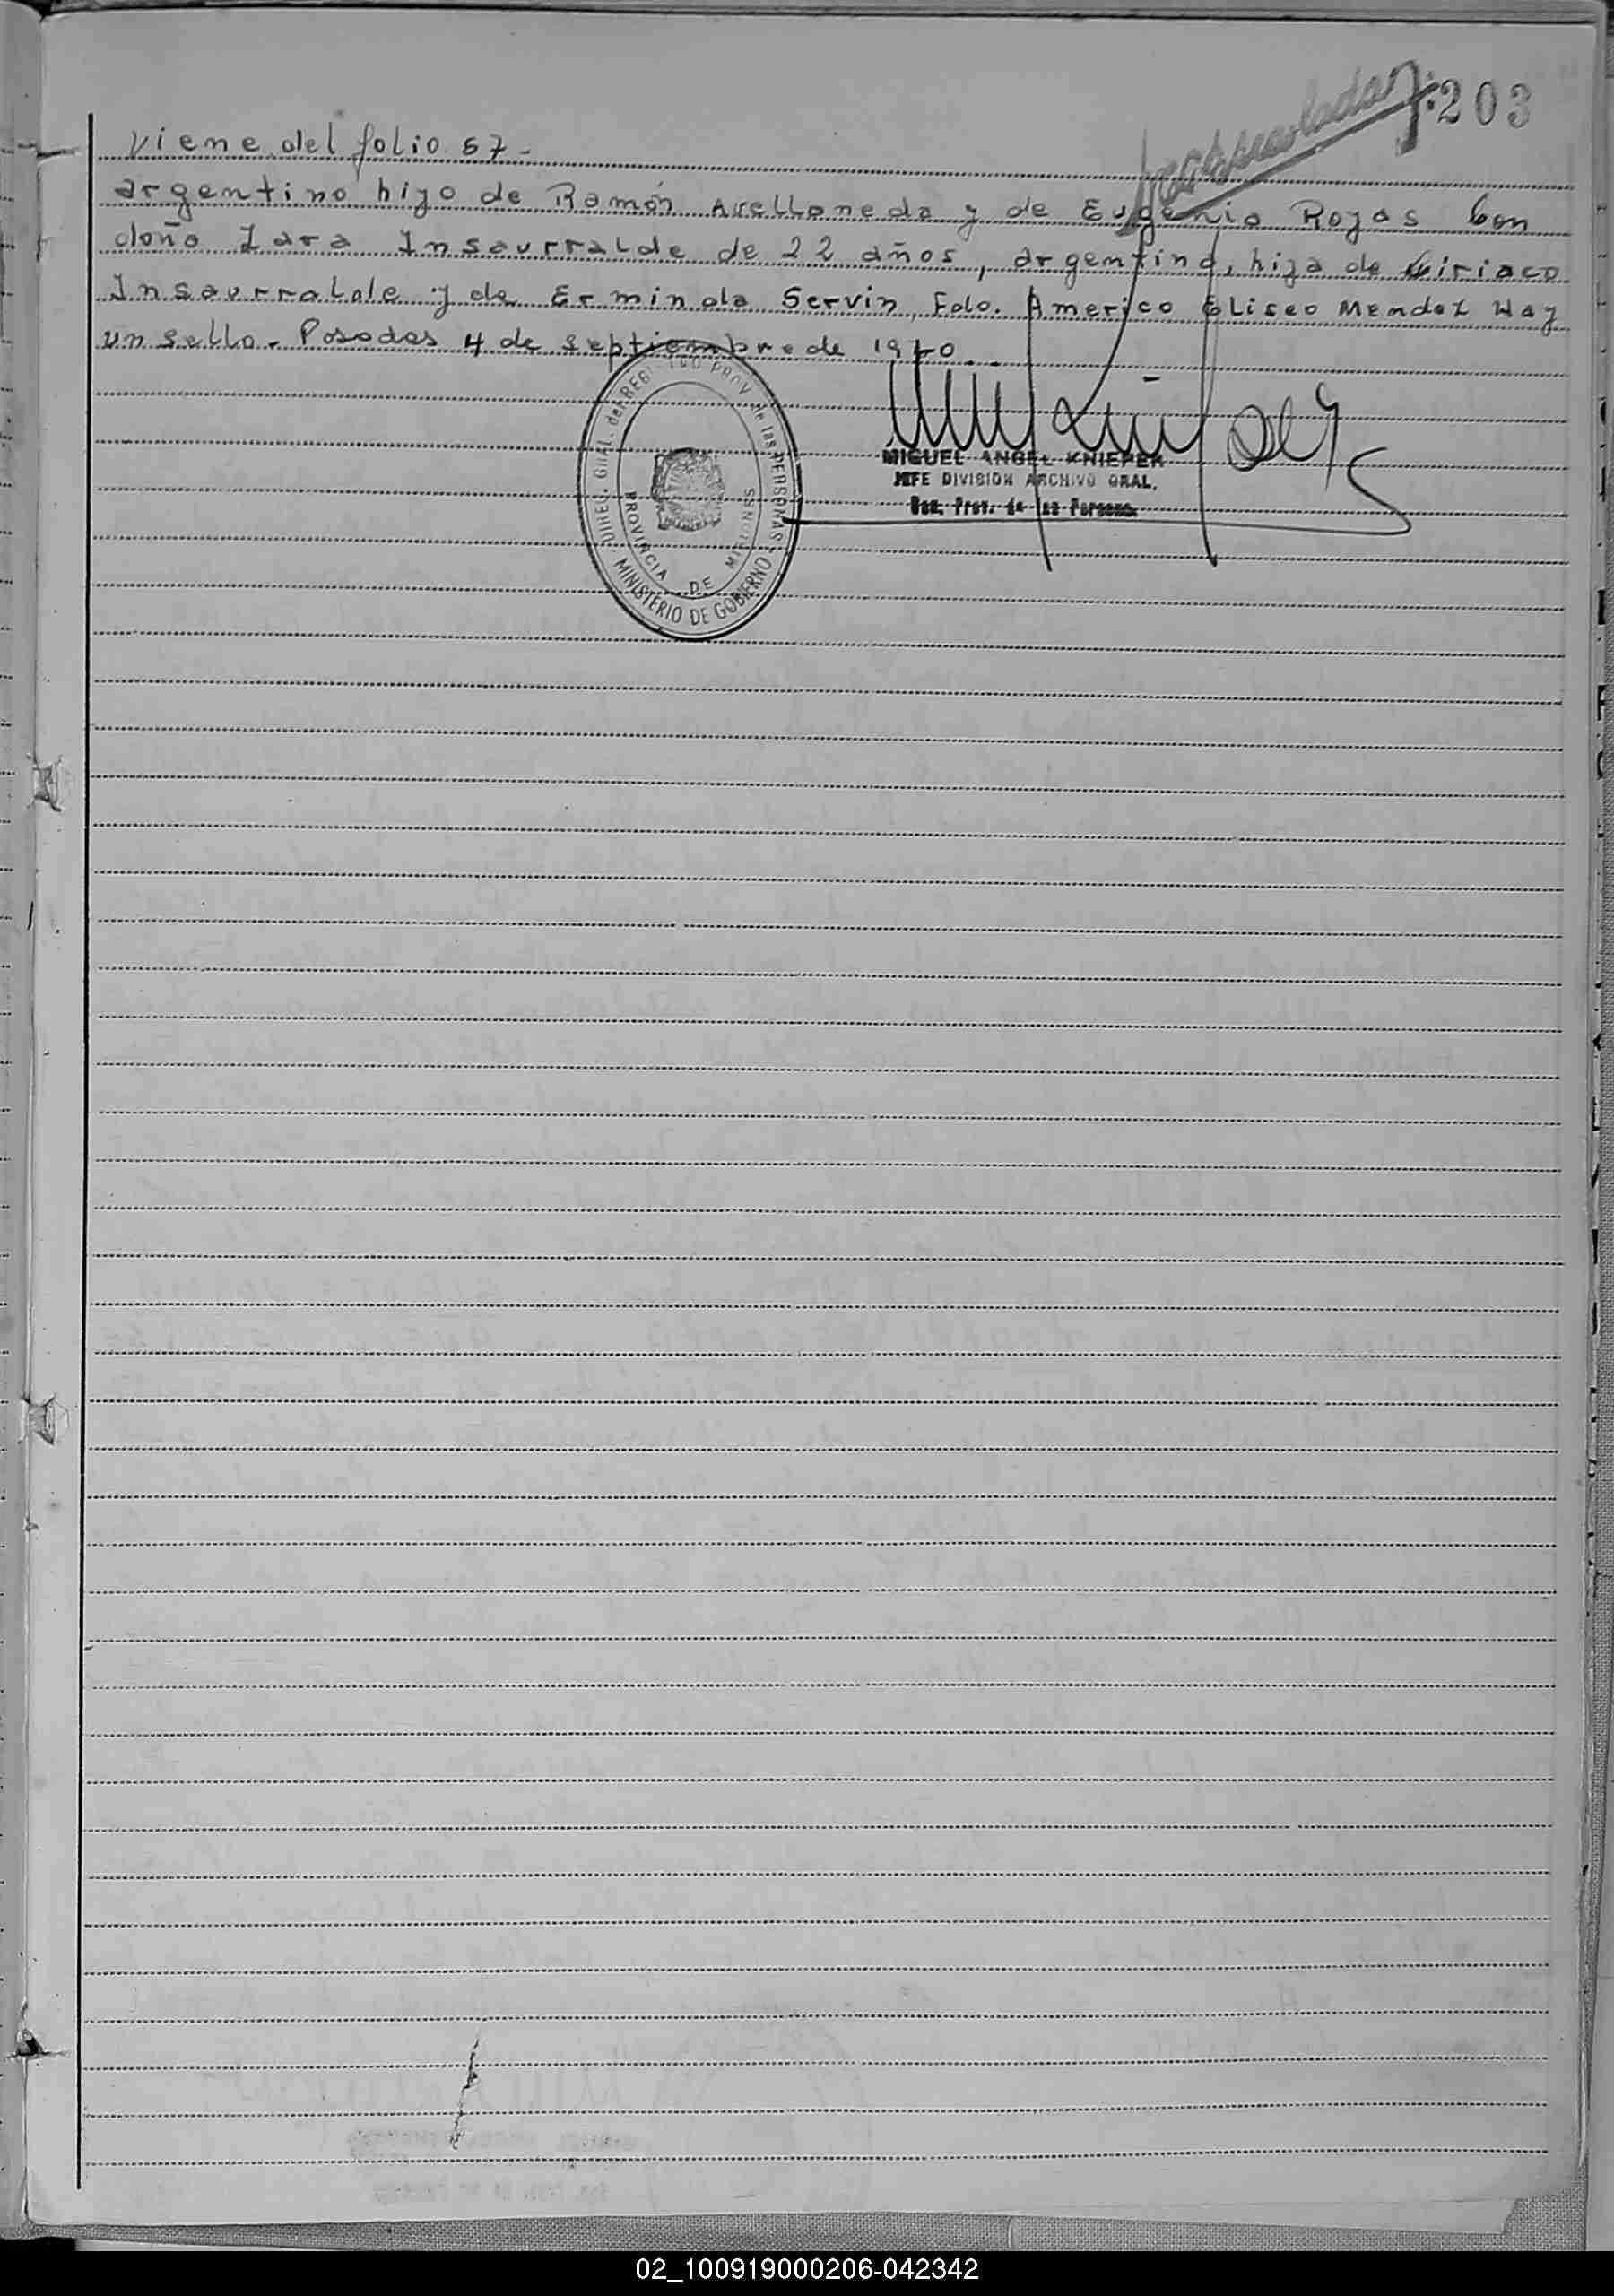 203
viene del folio 57-
argentino hijo de Ramón Avellaneda y de Eugenia Rojas Con
doña Zara Insaurralde de 22 años, argentina, hija de Ciriaco
Insaurralde y de Erminda Servin, Fdo. Americo Eliseo Mendez Hay
un sello. Posadas 4 de septiembre de
MIGUEL ANGEL KNIEPER
JEFE DIVISION ARCHIVO GRAL.
Prov. de las Personas
GRAL. del REGISTRO PROV. de las PERSONAS
PROVINCIA DE MISIONES
MINISTERIO DE GOBIERNO
02_100919000206-042342